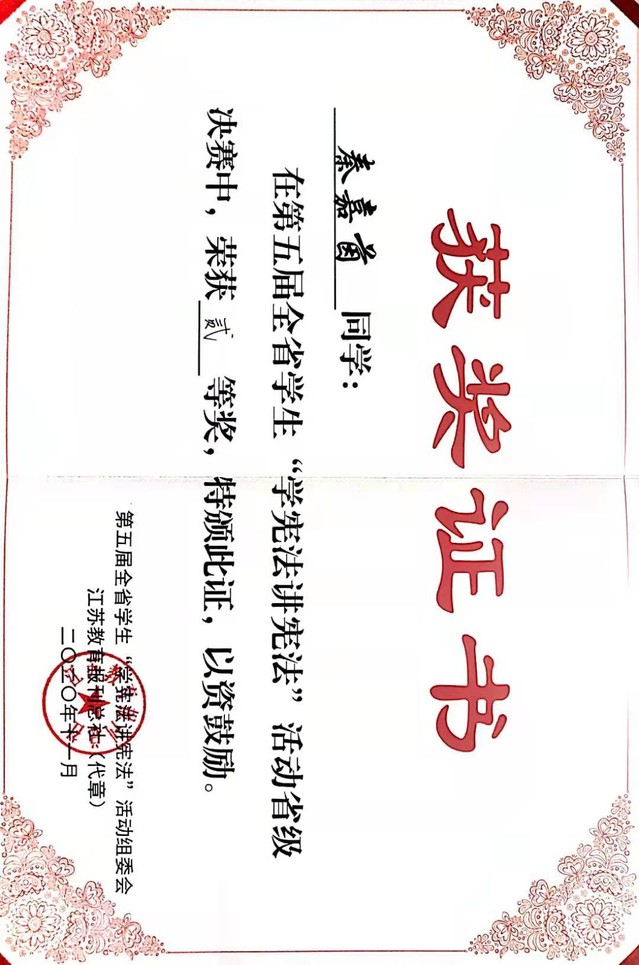 获奖证书
秦嘉茵 同学：
在第五届全省学生“学宪法讲宪法”活动省级
决赛中，荣获 贰 等奖，特颁此证，以资鼓励。
第五届全省学生“学宪法讲宪法”活动组委会
江苏教育报刊总社（代章）
二〇二〇年十一月